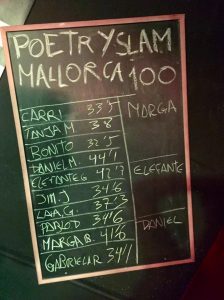 POETRY SLAM
MALLORCA 100
CARRI 33'5
TANJA M 38
BONTO 32'5
DANIEL M 44'1
ELEFANTE G 42'7
JIM.J 34'6
LAIA G. 37'3
PABLO 34'6
MARGA B. 41'6
GABRIELA R 34'1
MARGA
ELEFANTE
DANIEL